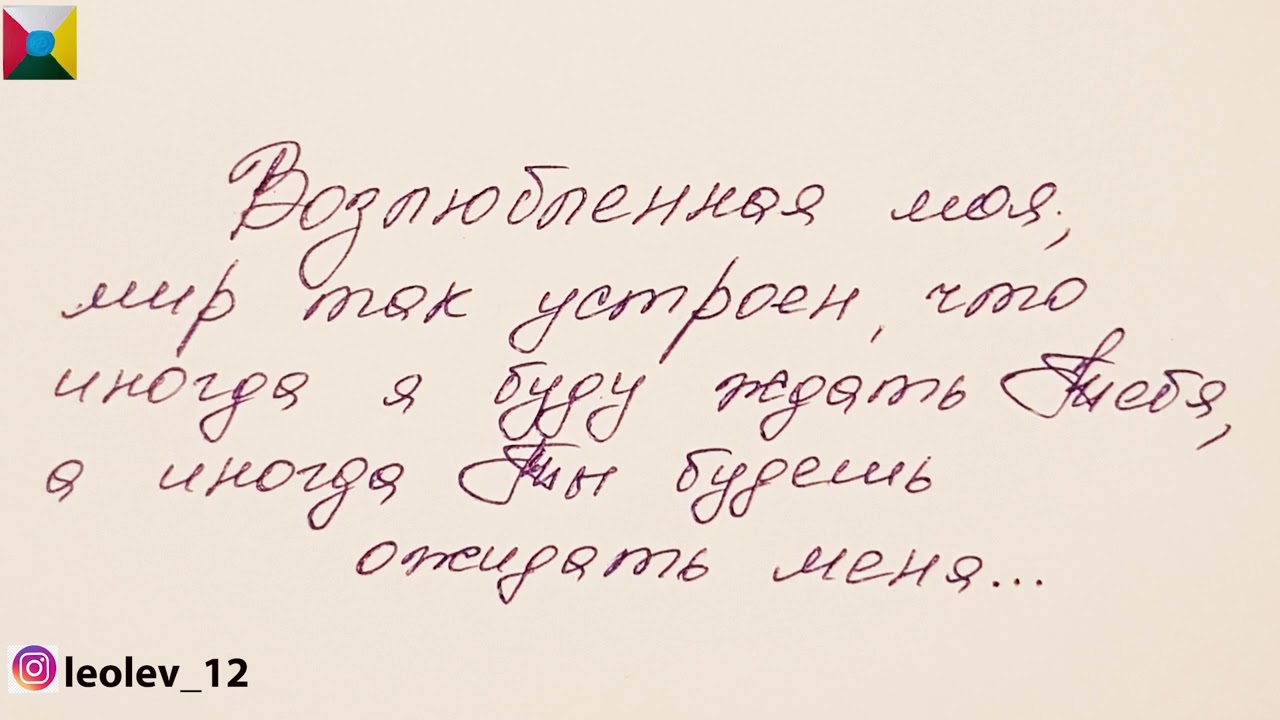 Возлюбленная моя,
мир так устроен, что
иногда я буду ждать Тебя,
а иногда Ты будешь
ожидать меня...
leolev_12